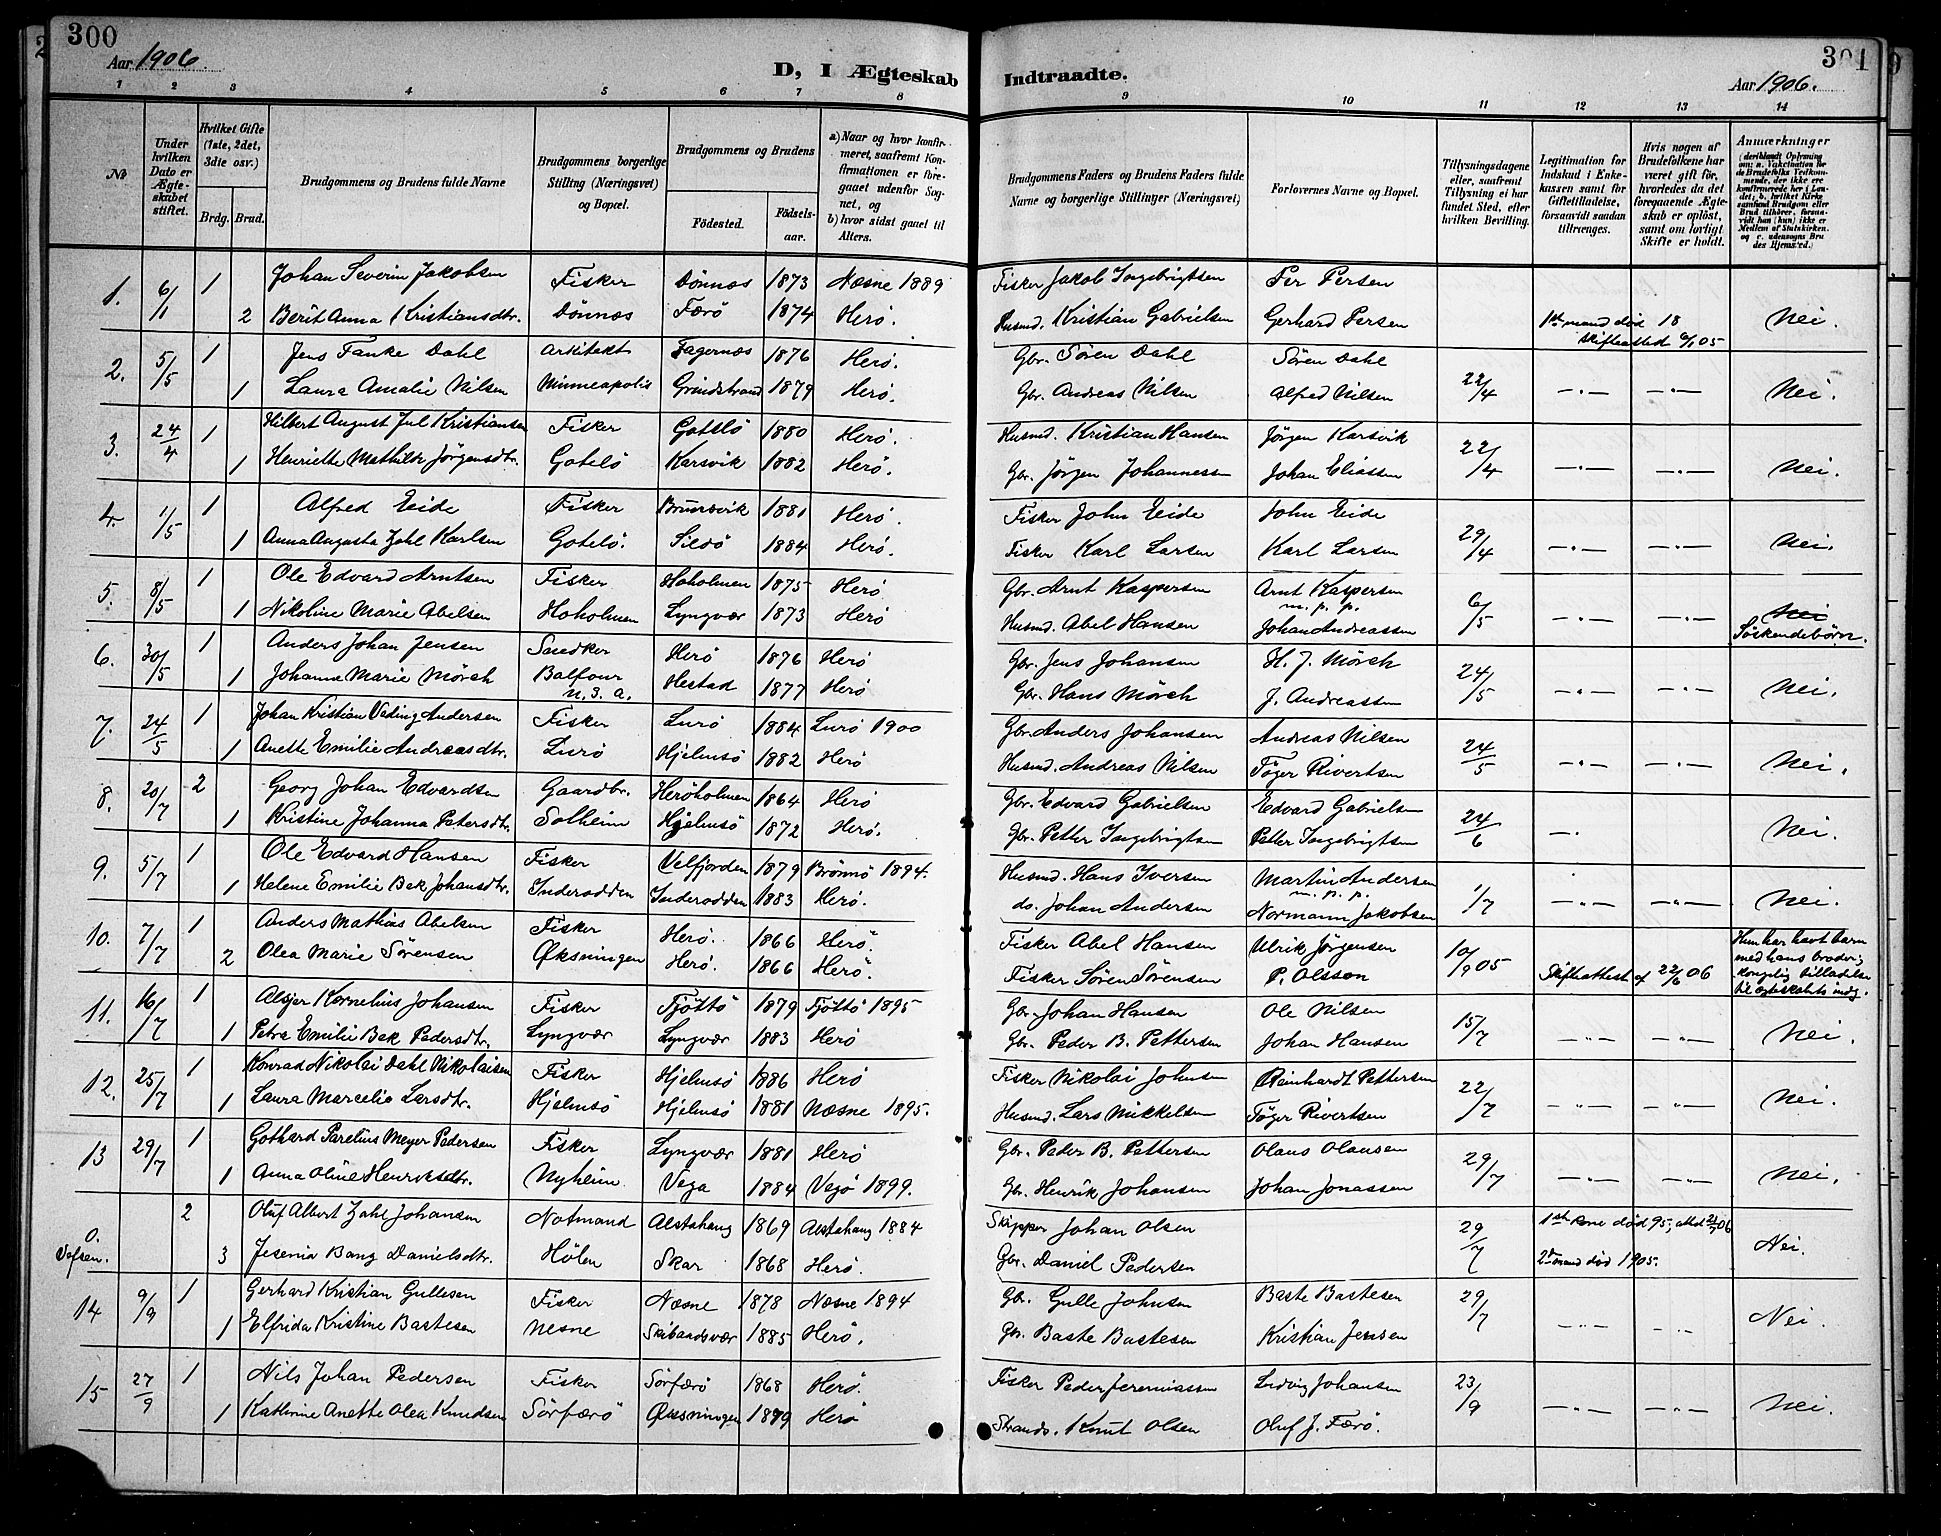 300
Aar 1906.
D, I Ægteskab
1 2 3 4 5 6 7 8
No
Under hvilken Dato er Ægteskabet stiftet.
Hvilket Gifte (1ste, 2det, 3die osv.)
Brdg. Brud.
Brudgommens og Brudens fulde Navne
Brudgommens borgerlige Stilling (Næringsvei) og Bopæl.
Brudgommens og Brudens
Födested. Födselsaar.
a) Naar og hvor konfirmeret, saafremt Konfirmationen er foregaaet udenfor Sognet, og
b) hvor sidst gaaet til Alters.
1. 6/1 1 Johan Severin Jakobsen Fisker Dönnæs 1873 Næsne 1889
2 Berit Anna Kristiansdtr. Dönnæs Færö 1874 Herö.
2. 5/5 1 Jens Tanke Dahl Arkitekt Fagernæs 1876 Herö.
1 Laura Amalie Nilsen Minneapolis Grindstrand 1879 Herö.
3. 24/4 1 Hilbert August Jul Kristiansen Fisker Gotelö 1880 Herö.
1 Henriette Mathilde Jörgensdtr. Gotelö Karsvik 1882 Herö.
4. 1/5 1 Alfred Eide Fisker Brunsvik 1881 Herö.
1 Anna Augusta Zahl Karlsen Gotelö. Sildö 1884 Herö.
5. 8/5 1 Ole Edvard Arntsen Fisker Hoholmen 1875 Herö
1 Nikoline Marie Abelsen Hoholmen Lyngvær 1873 Herö
6. 30/5 1 Anders Johan Jensen Snedker Herö 1876 Herö
1 Johanna Marie Mörch Balfour N. S. A. Hestad 1877 Herö
7. 24/5 1 Johan Kristian Veding Andersen Fisker Lurö 1884 Lurö 1900
1 Anette Emilie Andreasdtr. Lurö Hjelmsö 1882 Herö
8. 20/7 2 Georg Johan Edvardsen Gaardbr. Heröholmen 1864 Herö
1 Kristine Johanna Petersdtr. Solheim Hjelmsö 1872 Herö.
9. 5/7 1 Ole Edvard Hansen Fisker Velfjorden 1879 Brönnö 1894.
1 Helene Emilie Bek Johansdtr. Inderodden Inderodden 1883 Herö.
10. 7/7 1 Anders Mathias Abelsen Fisker Herö. 1866 Herö.
2 Olea Marie Sörensen Öksningen Herö. 1866 Herö.
11. 16/7 1 Alsjer Kornelius Johansen Fisker Tjöttö 1879 Tjöttö 1895
1 Petra Emilie Bek Pedersdtr. Lyngvær Lyngvær 1883 Herö
12. 25/7 1 Konrad Nikolai Dahl Nikolaisen Fisker Hjelmsö 1886 Herö
1 Laura Marcelie Larsdtr. Hjelmsö Hjelmsö 1881 Næsne 1895.
13 29/7 1 Gothard Parelius Meyer Pedersen Fisker Lyngvær 1881 Herö
1 Anna Oline Henriksdtr. Nyheim Vega 1884 Vegö 1899.
0. Vefsen. 2 Oluf Albert Zahl Johansen Notmand Alstahaug 1869 Alstahaug 1884
3 Jesenia Bang Danielsdtr. Hölen Skar 1868 Herö.
14 9/9 1 Gerhard Kristian Gullesen Fisker Næsne 1878 Næsne 1894
1 Elfrida Kristine Bastesen Nesne Skibaadsvær 1885 Herö.
15 27/9 1 Nils Johan Pedersen Fisker Sörfærö 1868 Herö.
1 Kathrine Anette Olea Knudsen Sörfærö Öksningen 1879 Herö
301
Aar 1906.
Indtraadte.
9 10 11 12 13 14
Brudgommens Faders og Brudens Faders fulde Navne og borgerlige Stillinger (Næringsvei)
Forlovernes Navne og Bopæl.
Tillysningsdagene eller, saafremt Tillysning ei har fundet Sted, efter hvilken Bevilling.
Legitimation for Indskud i Enkekassen samt for Giftetilladelse, forsaavidt saadan tiltrænges.
Hvis nogen af Brudefolkene har været gift för, hvorledes da det foregaaende Ægteskab er oplöst, samt om lovligt Skifte er holdt.
Anmærkninger
(deriblandt Oplysning om: a. Vakcination for de Brudefolks Vedkommende, der ikke ere konfirmerede her i Landet; b. hvilket Kirkesamfund Brudgom eller Brud tilhörer, forsaavidt han (hun) ikke er Medlem af Statskirken, og c. udensogns Brudes Hjemsted.)
Fisker Jakob Ingebrigtsen Per Persen
Husmd. Kristian Gabrielsen Gerhard Persen 1st mand död 18 skifteattest 6/1 05 Nei.
Gbr. Sören Dahl Sören Dahl 22/4
Gbr. Andreas Nilsen Alfred Nilsen —"— —"— Nei.
Husmd. Kristian Hansen Jörgen Karsvik 22/4
Gbr. Jörgen Johannessen Johan Eliassen —"— —"— Nei.
Fisker John Eide John Eide 29/4
Fisker Karl Larsen Karl Larsen —"— —"— Nei.
Gbr. Arnt Kaspersen Arnt Kaspersen m. p. p. 6/5
Husmd. Abel Hansen Johan Andreassen —"— —"— Nei Söskendebörn.
Gbr. Jens Johansen H. J. Mörch 24/5
Gbr. Hans Mörch J. Andreassen —"— —"— Nei.
Gbr. Anders Johansen Andreas Nilsen 24/5
Husmd. Andreas Nilsen Töger Rivertsen —"— —"— Nei.
Gbr. Edvard Gabrielsen Edvard Gabrielsen 24/6
Gbr. Petter Ingebrigtsen Petter Ingebrigtsen —"— Nei.
Husmd. Hans Iversen Martin Andersen m. p. p. 1/7
do. Johan Andersen Normann Jakobsen —"— —"— Nei.
Fisker Abel Hansen Ulrik Jörgensen 10/9 05
Fisker Sören Sörensen P. Olsson Skifteattest af 22/6 06 Hun har havt barn med hans broder, kongelig tilladelse til ægteskabts indg.
Gbr. Johan Hansen Ole Nilsen 15/7
Gbr. Peder B. Pettersen Johan Hansen —"— —"— Nei.
Fisker Nikolai Johnsen Reinhardt Pettersen 22/7
Husmd. Lars Mikkelsen Töger Rivertsen —"— —"— Nei.
Gbr. Peder B. Pettersen Olaus Olausen 29/7
Gbr. Henrik Johansen Johan Jonassen —"— —"— Nei.
Skipper Johan Olsen 29/7 1st kone död 95,
Gbr. Daniel Pedersen 2den mand död 1905. Nei.
Gbr. Gulle Johnsen Baste Bastesen 29/7
Gbr. Baste Bastesen Kristian Jensen —"— —"— Nei.
Fisker Peder Jeremiassen Ludvig Johansen 23/9
Strands. Knut Olsen Oluf J. Færö. —"— —"— Nei.